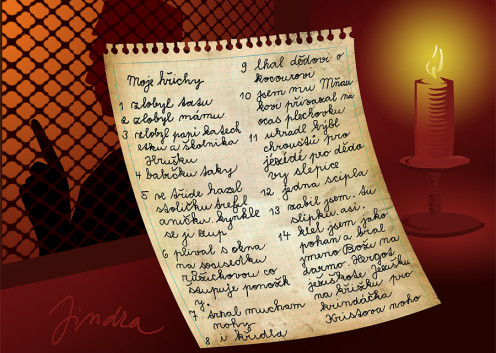 Moje hříchy
1 zlobyl tatu
2 zlobyl mámu
3 zlobyl papi katech
etku a školnika
Hrušku
4 babičku taky
5 ve třude hazel
stoličku trefil
aničku. kynkle
se ji zup
6 plival s okna
na sousedku
růžichovou co
štupuje ponožk
y.
7 trhal mucham
nohy
8 i křidla
9 lhal dědovi o
kocourovi
10 jsem mu Mňau
kovi přivazal na
ocas plechovku
11 ukradl kýbl
chroustů pro
jezédé pro dědo
vy slepice
12 jedna scipla
13 zabil jsem. tu
slípku asi.
14 klel jsem jako
pohan a bral
jmeno Božu na
darmo. Hergot
ježiškote Ježišku
na křižku pro
krindáčka
Kristova noho
Jindra